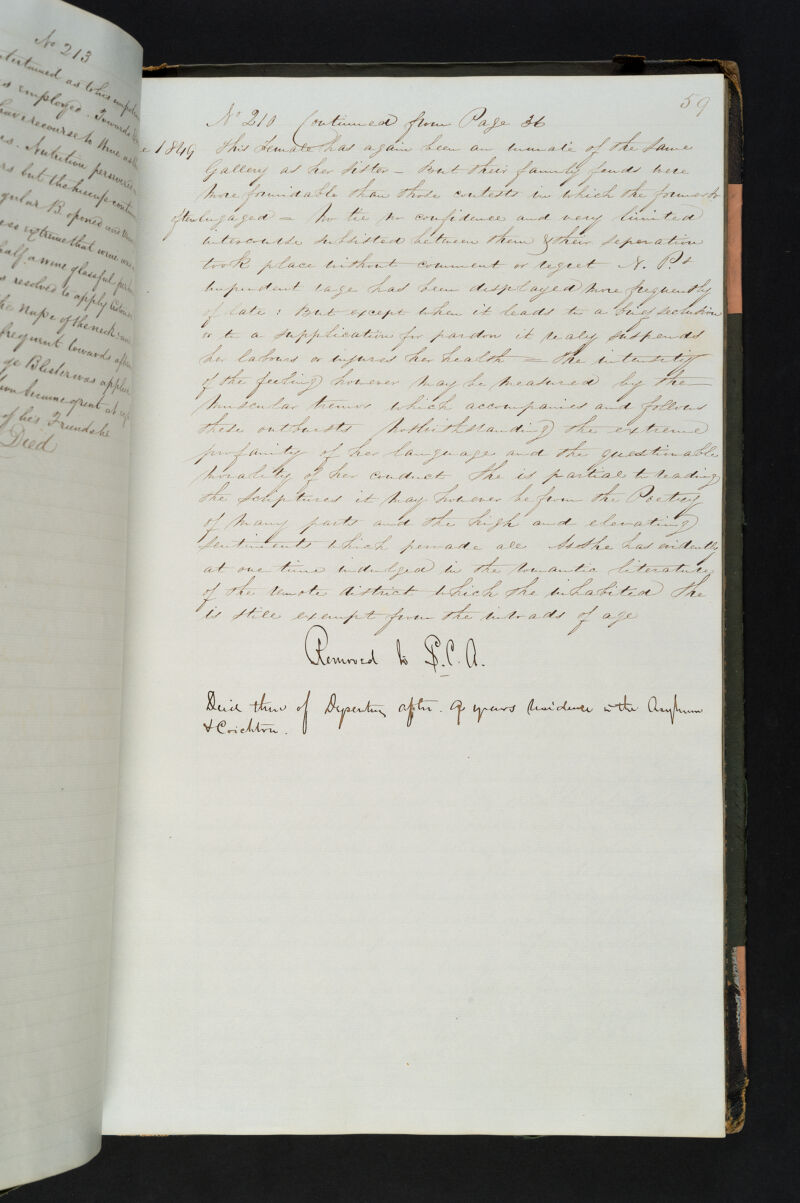 No 213
ntertained as to his
is employed. Towards
have recourse to Wine
es. Nutrition persevered
rs but the hiccup
gular B. opened
was extreme that wine was
half a wine glassful
s resolved to apply
the Nape of the neck
frequent towards
ge Blister was applied
became great
of his Friends he
Died
59
No 210 Continued from Page 36
e 1849 This Female has again been an inmate of the same
Gallery as her sister – But their family feuds were
more formidable than those contests in which the former to
often engaged = No tie no confidence and very limited
intercourse subsisted between them & their seperation
took place without comment or regret N. P.s
impendent rage has been displayed more frequently
of late : But except when it leads to a brief seclusion
or to a supplication for pardon it rarely suspends
her labours or injures her health = the intensity
of the feeling however may be measured by the
muscular tremor which accompanies and follows
these outbursts Nothwithstanding the extreme
profanity of her language and the questionable
morality of her conduct She is partial to reading
the Scriptures it may however be from the Poetry
of many parts and the high and elevating
sentiments which pervade all As she has evidently
at one time indulged in the romantic literature
of the remote district which she inhabited She
is still exempt from the inroads of age
Removed to S.C.A.
Died there of Dysentery after 9 years residence in the Asylum
& Crichton.